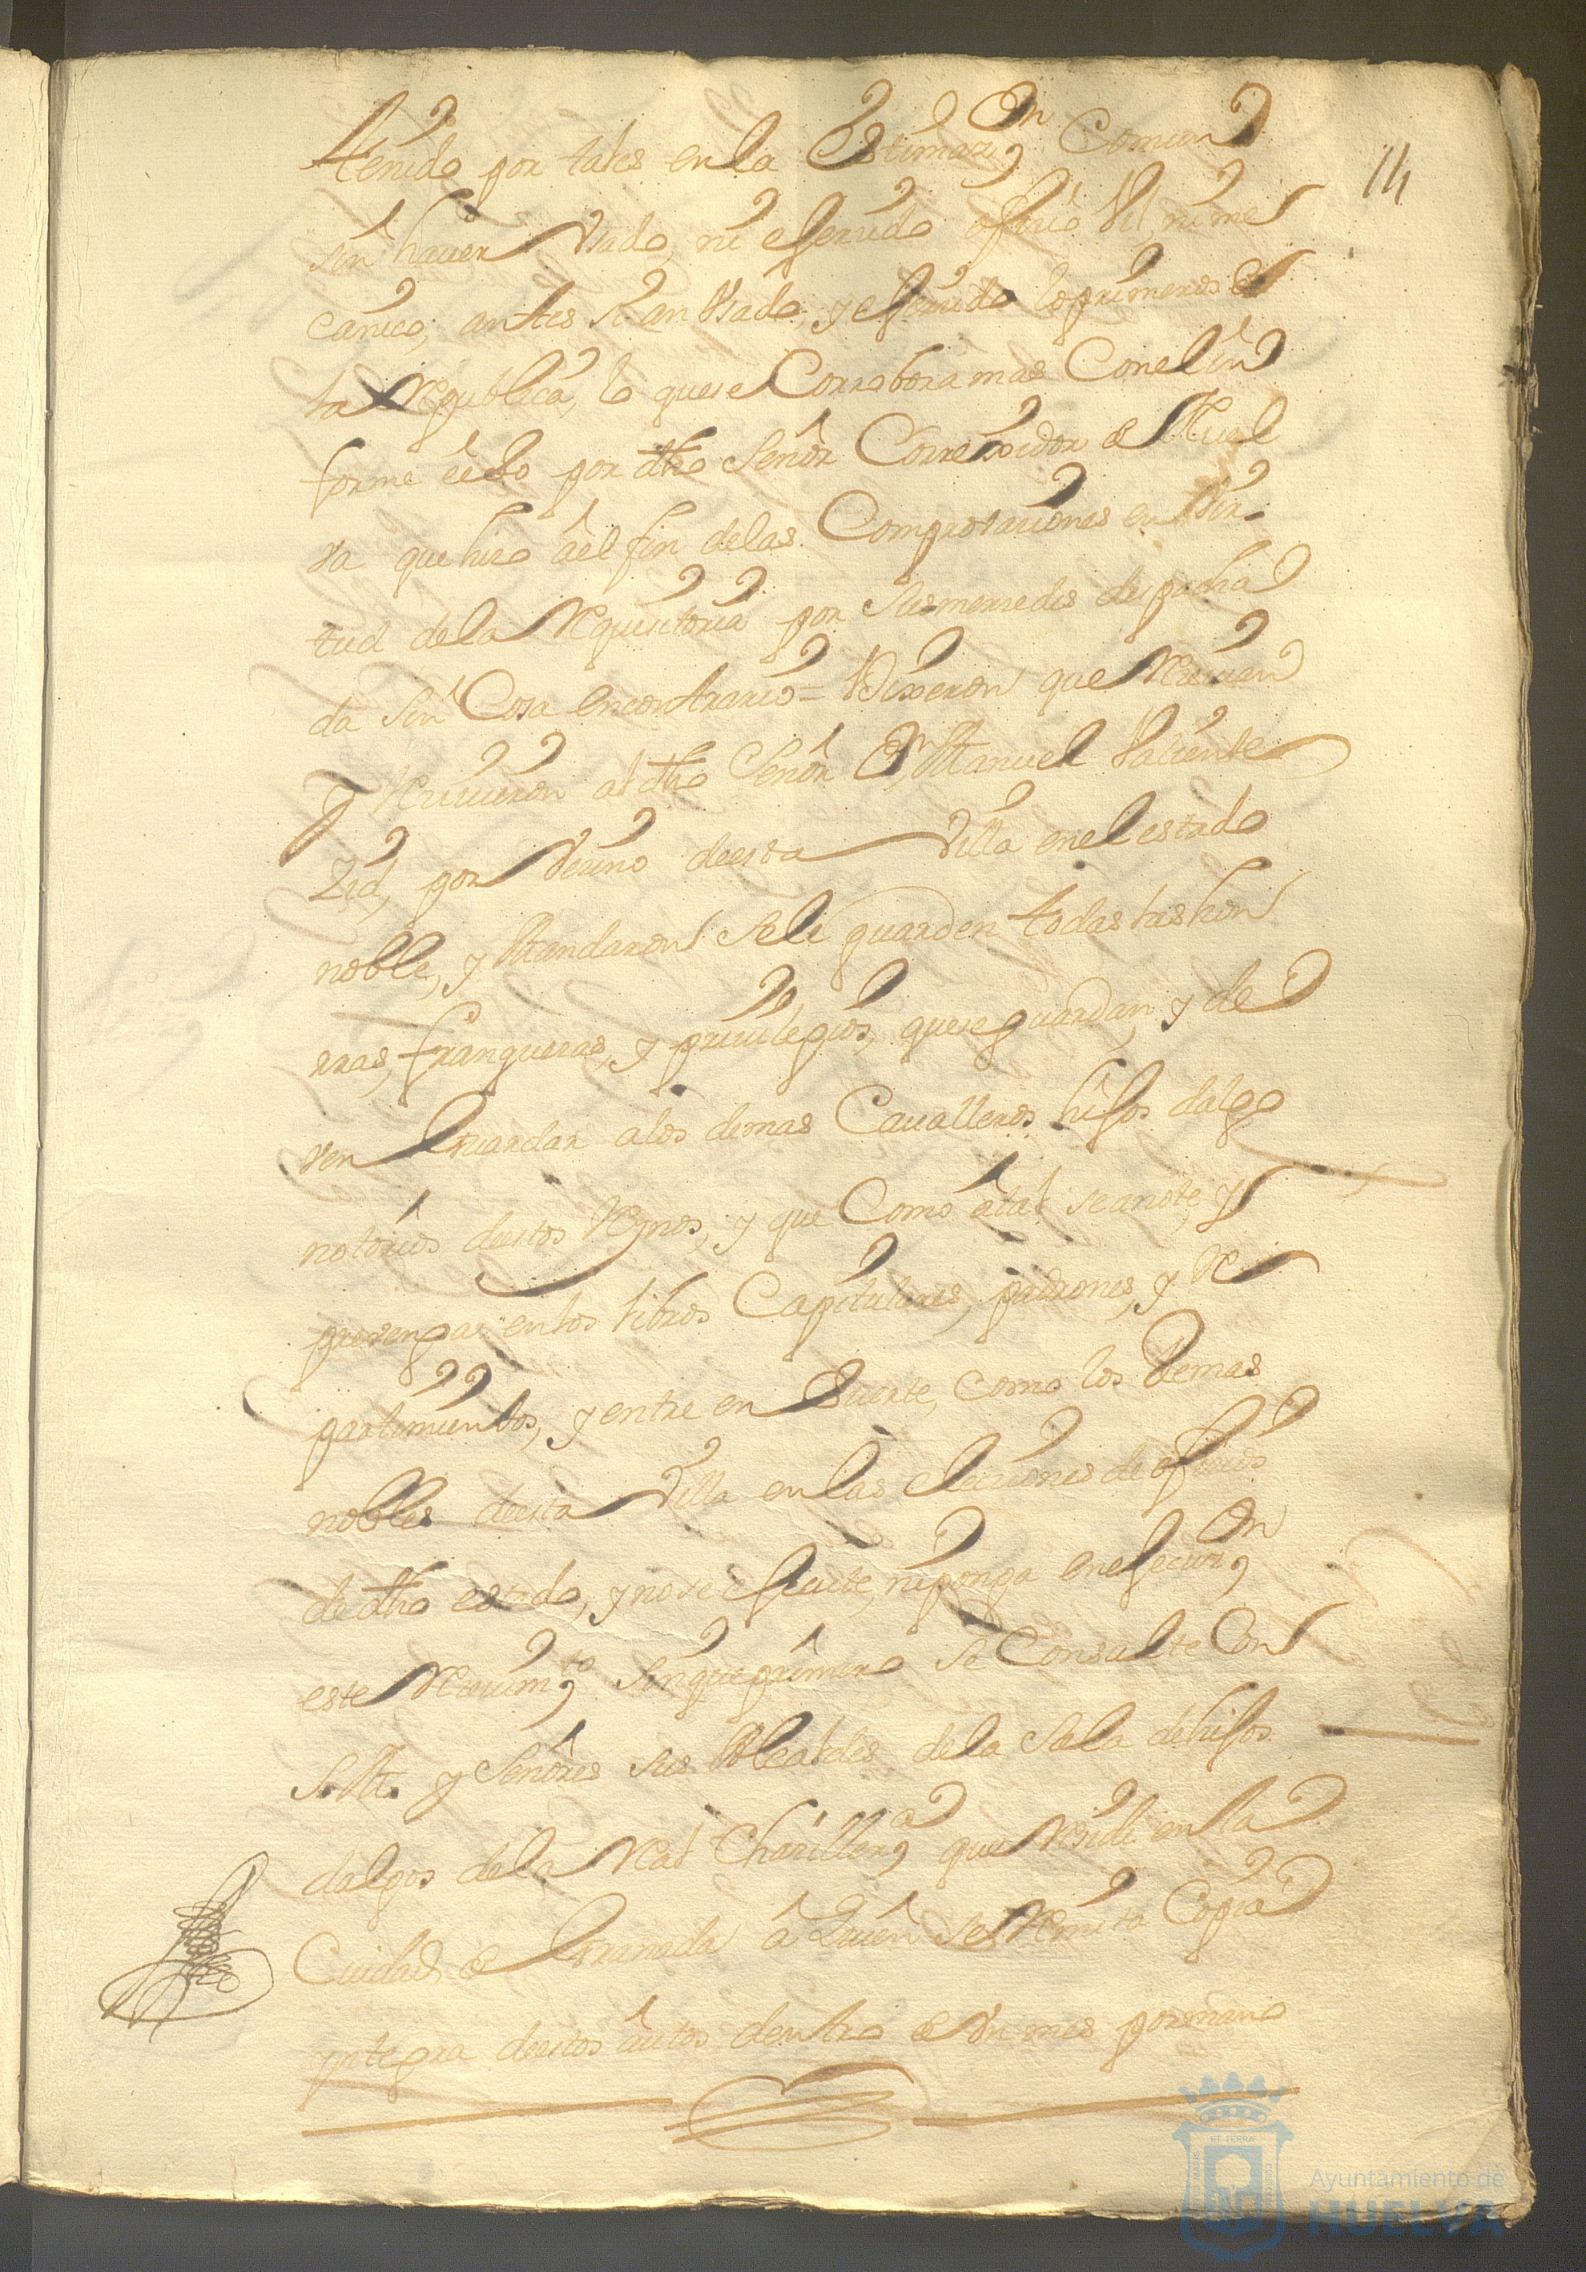 tenido por tales en la Estimazion Comun
14
sin haver Vsado, ni ejersido ofisio Vil, ni me
canico, antes si an Vsado, y ejersido los primeros de
la Republica, lo que se Corrobora mas Con el in
forme echo por dho Señor Correxidor de Huel
va que hizo ael fin delas Comprovaciones en Vir-
tud dela Requisitoria por Sus mersedes despacha
da Sin Cosa encontrario = Dixeron que Resivian
y Resivieron al dho Señor Dn Manuel Valiente
Zid, por Vezino deesta Villa en el estado
noble, y Mandaron Se le guarden todas las hon
rras, franquezas, y privilegios, quese guardan, y de
ven Guardar alos demas Cavalleros hijos dalgo
notorios destos Reynos, y que Como â tal se anote, y
prevenga en los libros Capitulares, padrones, y Re
partimientos, y entre en Suerte, Como los demas
nobles deesta Villa en las elecciones de ofisios
de dho estado, y nose ejecute, ni ponga en ejecuzn
este Resivimto Sin que primero Se Consulte Con
S. M. y Señores Sus Alcaldes dela Sala de hijos
dalgos dela Real Chanzilleria que Reside en la
Ciudad de Granada â Quien Se Remita Copia
yntegra destos autos dentro de Vn mes por mano
Ayuntamiento de
HUELVA